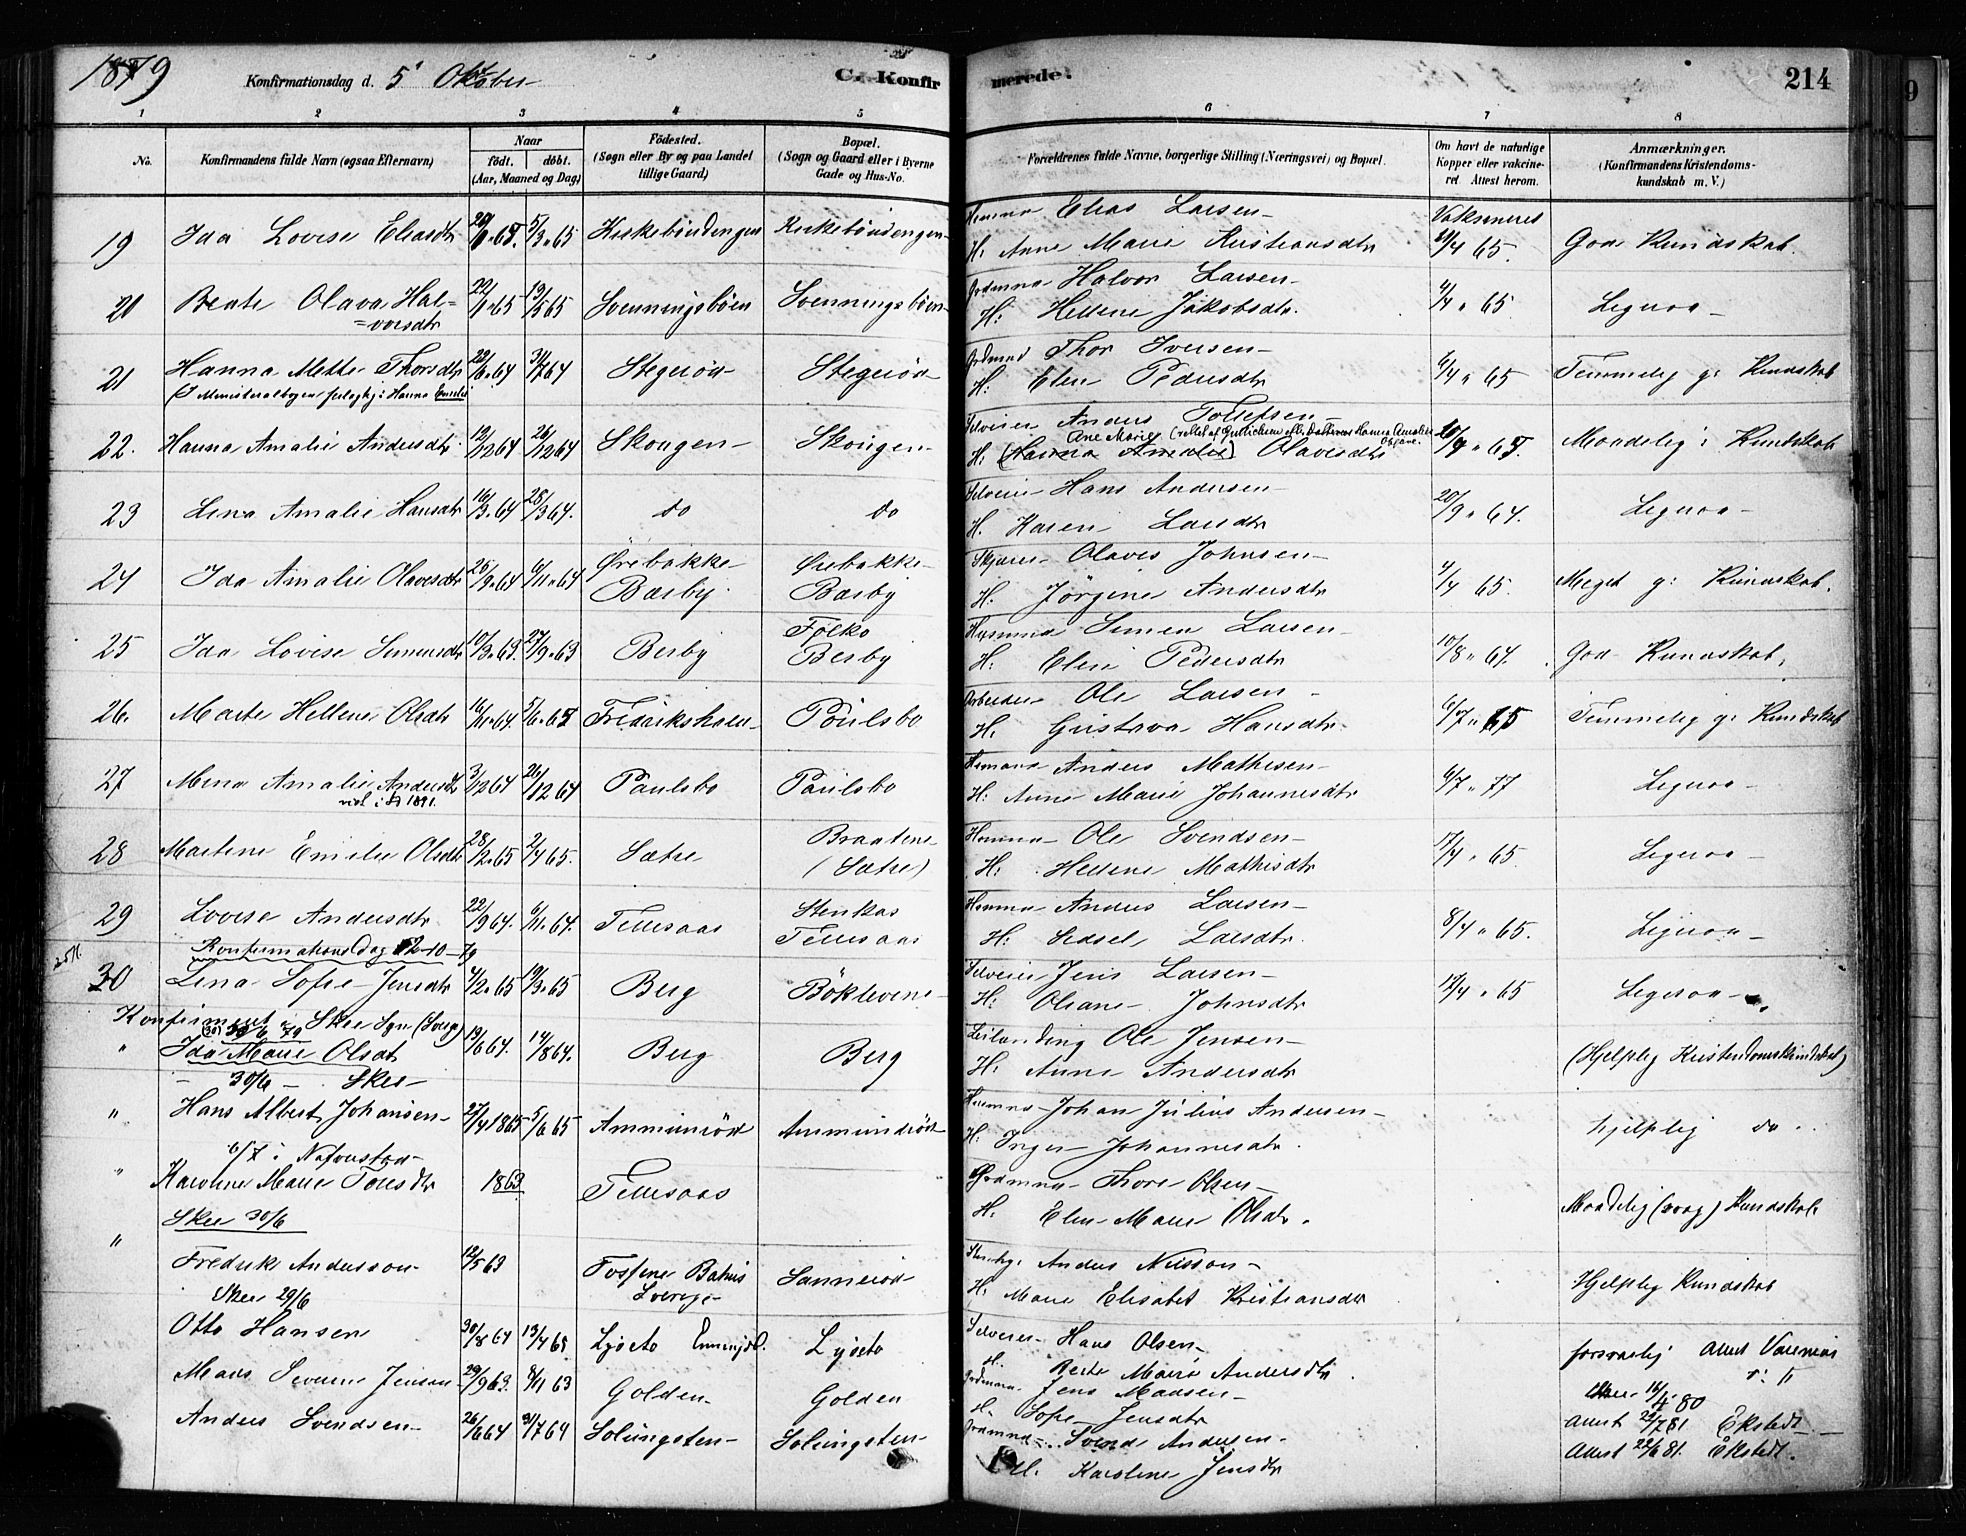 1879 Konfirmationsdag d. 5' Oktober C. Konfirmerede. 214
1 2 3 4 5 6 7 8
No. Konfirmandens fulde Navn (ogsaa Efternavn) Naar födt. döbt. (Aar, Maaned og Dag) Födested. (Sogn eller By og paa Landet tillige Gaard) Bopæl. (Sogn og Gaard eller i Byerne Gade og Hus-No. Forældrenes fulde Navne, borgerlige Stilling (Næringsvei) og Bopæl. Om havt de naturlige Kopper eller vakcineret Attest herom. Anmærkninger. (Konfirmandens Kristendomskundskab m. V.)
19 Ida Lovise Eliasdtr 5/3 65 Kirkeböndengen Kirkeböndengen Elias Larsen Vaksineret
H: Anne Marie Kristiansdtr /4 65 God Kundskab.
20 Beate Olava Halvorsdtr 22/1 65 19/3 65 Svenningsböen Svenningsböen Grdmnd Halvor Larsen
H: Hellene Jakobsdtr. 4/4 65 Ligesaa
21 Hanna Mette Thorsdtr 22/6 64 31/7 64 Stegeröd Stegeröd Grdmnd Thor Iversen
(I Ministerialbogen Hanna Emilie H. Elen Pedersdtr 6/4 65 Temmelig g: Kundskab
22. Hanna Amalie Andersdtr 12/12 64 26/12 64 Skougen Skougen Selveier Anders Tollefsen
Ane Marie (rettet af efter Datteren Hanna Amalies
H: (Hanna Amalie) Olavesdtr 65. Maadelig: Kundskab
23 Lina Amalie Hansdtr 16/3 64 28/3 64. do do Selveier Hans Andersen
H. Karen Larsdtr 20/9 64. Ligesaa
24 Ida Amalie Olavesdtr 25/9 64 6/11 64 Örebakke Bærby Örebakke Bærby Olaves Johnsen
H: Jörgine Andersdtr 4/4 65. Meget g: Kundskab.
25 Ida Lovise Simensdtr 10/3 63. 27/9 63 Berby Folko Berby Husmnd Simen Larsen
H: Elen Pedersdtr 10/8 64. God Kundskab.
26. Marte Hellene Olsdtr 16/11 64. 5/6 65 Fredrikshald Poulsbo Arbeider Ole Larsen
H: Gustava Hansdtr. 6/7 65 Temmelig g: Kundskab
27 Mina Amalie Andersdtr 3/12 64 26/12 64 Paulsbo Paulsbo Husmand Anders Mathisen
1891. H: Anne Marie Johannesdtr 6/7 77 Ligesaa
28 Martine Emilie Olsdtr 28/2 65 2/4 65. Sætre Braatene (Sætre) Husmnd Ole Svendsen
H. Hellene Mathisdtr 17/4 65. Ligesaa
29 Lovise Andersdtr 22/9 64. 6/11 64. Tellesaas Stenkas Tellesaas Husmnd Anders Larsen
H: Sidsel Larsdtr. 8/4 65. Ligesaa
Konfirmationsdag 12-10-79
30 Lina Sofie Jensdtr 4/2 65 19/3 65 Berg Böklevene Selveier Jens Larsen
H: Oliane Johnsdtr 12/4 65 Ligesaa
Konfirmeret i Skee Sgn (Sverige)
" Ida Marie Olsdt 19/6 64. 14/8 64. Berg Berg Leilænding Ole Jensen
H: Anne Andersdtr (Hjelplig Kristendomskundskab)
30/6 Skee
" Hans Albert Johansen 27/4 1865 5/6 65 Ammundröd Ammundröd Husmnd Johan Julius Andersen
H: Inger Johannesdtr. hjelplig do
6/7 i Nafverstad
" Karoline Marie Toresdtr 1863 Tellesaas Grdmnd Thore Olsen
Skee 30/6 H. Elen Marie Olsdtr. Maadelig (svag) Kundskab
" Fredrik Andersson 12/5 63 Fossene Bahus Sverige Sanneröd Anders Nilsson
Skee 29/6 H. Marie Elisabet Kristiansdtr Hjelplig Kundskab
Otto Hansen 30/8 64 13/4 65 Lyseto Enningd. Lyseto Selveier Hans Olsen
H. Berte Marie Andersdtr forsvarlig Attest
Mads Severin Jensen 29/9 63. 8/11 63 Golden Golden Grdmnd Jens Madsen
H. Sofie Jensdtr 14/4 80 Attest 29/7 81 Ekstedt
Anders Svendsen 26/6 64 31/7 64 Solungsten Solungsten Grdmnd Svend Andersen
H. Karoline Jensdtr Attest 22/6 81. Ekstedt.